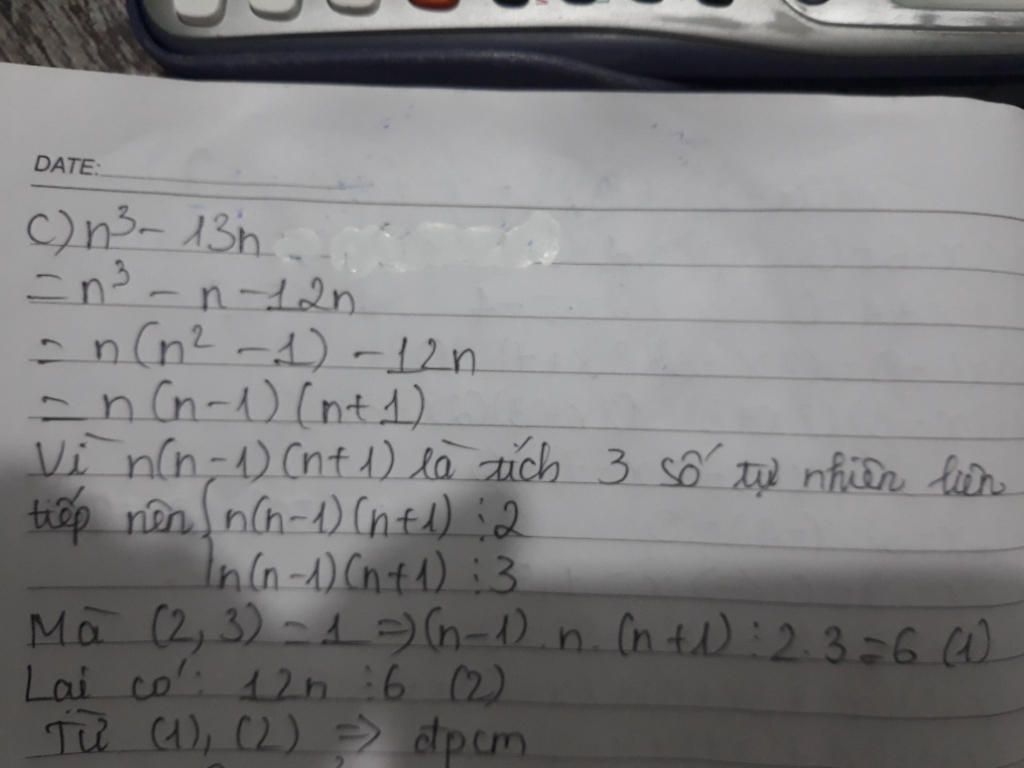 DATE:
c) n³ - 13n
= n³ - n - 12n
= n(n² - 1) - 12n
= n(n-1)(n+1)
Vì n(n-1)(n+1) là tích 3 số tự nhiên liên
tiếp nên { n(n-1)(n+1) ⋮ 2
n(n-1)(n+1) ⋮ 3
Mà (2,3) = 1 => (n-1).n.(n+1) ⋮ 2.3 = 6 (1)
Lại có: 12n ⋮ 6 (2)
Từ (1), (2) => đpcm